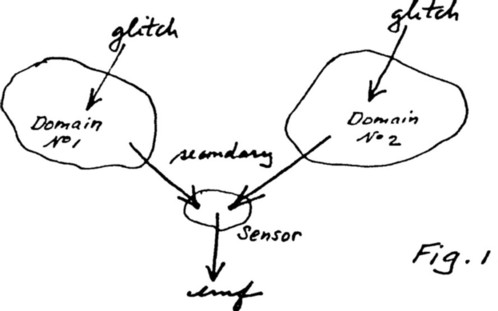 glitch
glitch
Domain
Nº1
Domain
Nº2
secondary
Sensor
emf
Fig. 1